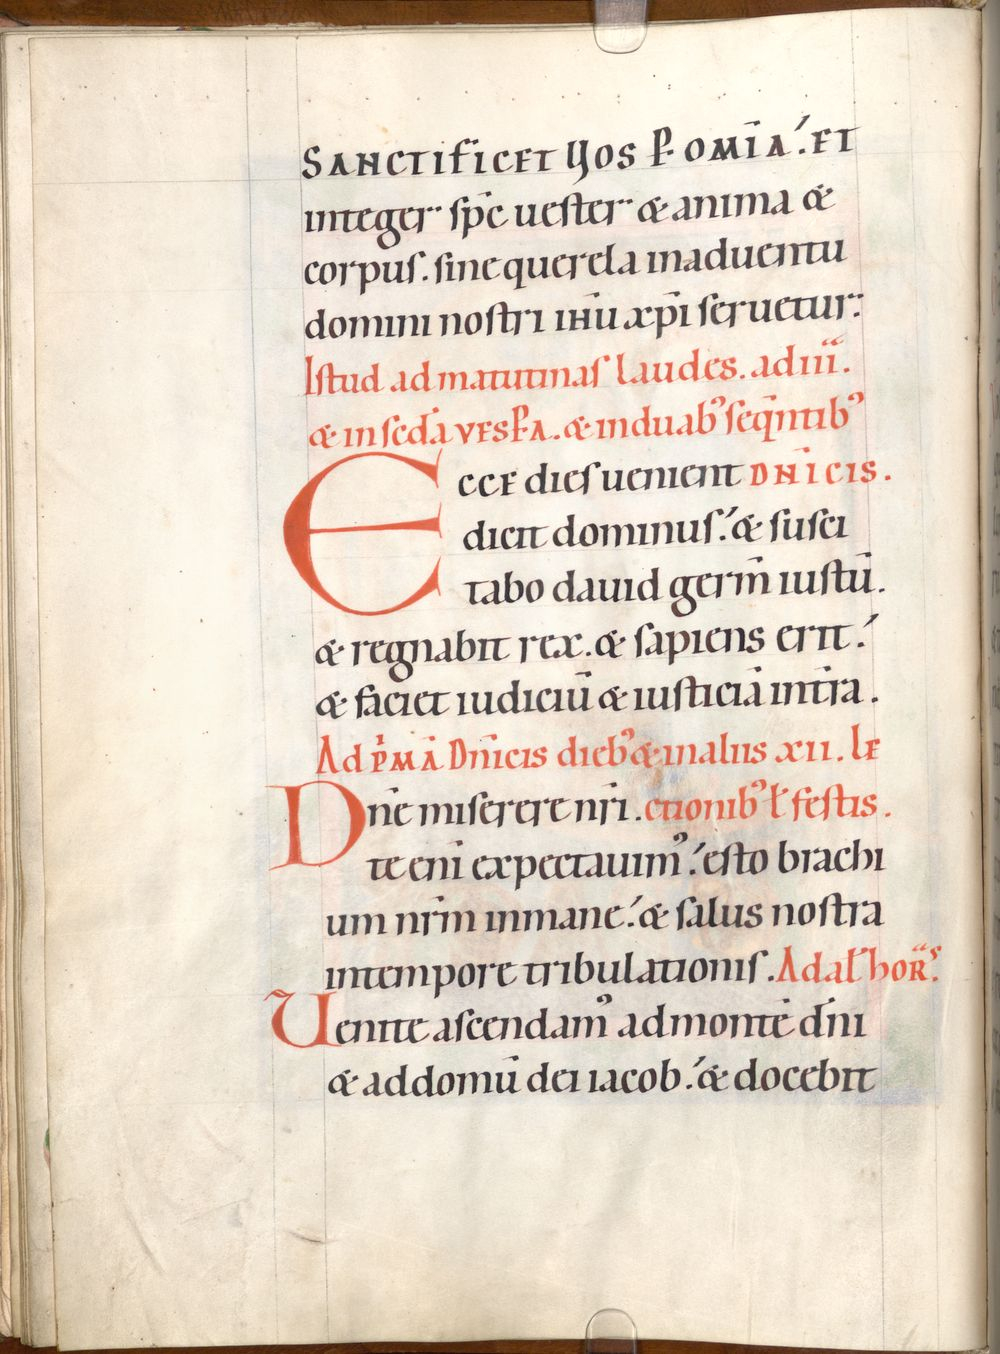 SANCTIFICET VOS P̲ OMĪA. ET
integer sp̄c uester & anima &
corpus. sine querela in aduentu
domini nostri ihū xpī seruetur.
Istud ad matutinas laudes. ad iii.
& in scd̄a VESP̲A. & in duab' seq̄ntib'
ECCE dies uenient DN̄ICIS.
dicit dominus. & susci
tabo dauid germ̄ iustū.
& regnabit rex. & sapiens erit.
& faciet iudiciū & iusticiā in tr̄a.
Ad p'mā Dn̄icis dieb' & in aliis xii. LE
Dn̄e miserere nr̄i. ctionib' ł festis.
te enī expectauim'. esto brachi
um nr̄m in mane. & salus nostra
in tempore tribulationis. Ad al' hoR̄s.
Uenite ascendam' ad montē dn̄i
& ad domū dei iacob. & docebit